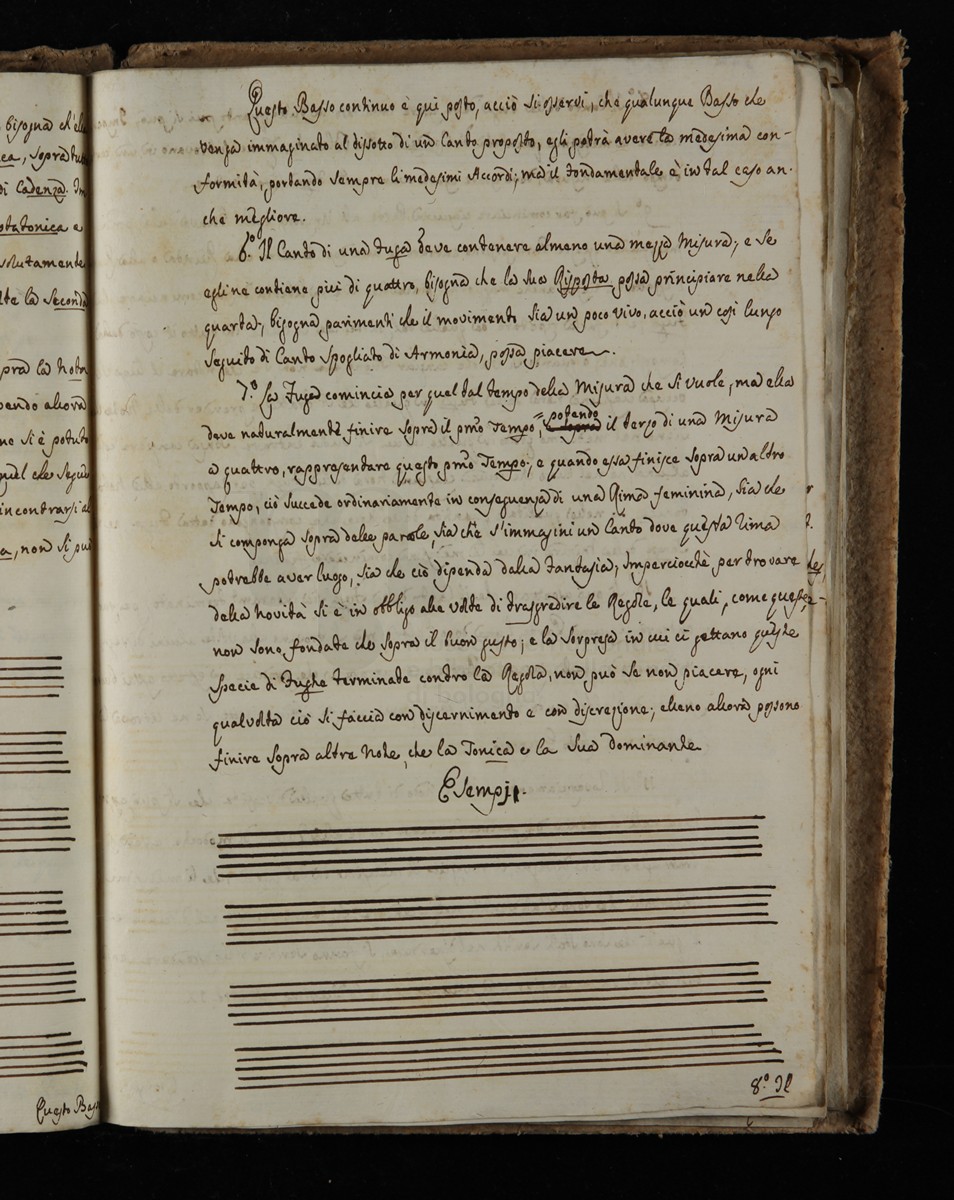 bisogna ch'el
ca, sopra tut
di Cadenza. Im
otatonica e
solutamente
lte la Seconda
pra la Nota
endo allora
ne si è potuto
quel che segue
incontrarsi al
a, non si può
Questo Bass
Questo Basso continuo è qui posto, acciò si osservi, che qualunque Basso che
venga immaginato al dissotto di un Canto proposto, egli potrà avere la medesima con-
formità, portando sempre li medesimi Accordi; ma il fondamentale è in tal caso an-
che migliore.
6.º Il Canto di una fuga deve contenere almeno una mezza Misura; e se
egli ne contiene più di quattro, bisogna che la sua Risposta possa principiare nella
quarta; bisogna parimenti che il movimento sia un poco vivo, acciò un così lungo
seguito di Canto spogliato di Armonia, possa piacere.
7.º La Fuga comincia per quel tal tempo della Misura che si vuole, ma ella
deve naturalmente finire sopra il pmo Tempo, potendo il terzo di una Misura
a quattro, rappresentare questo pmo Tempo; e quando essa finisce sopra un altro
Tempo, ciò succede ordinariamente in conseguenza di una Rima feminina, sia che
si componga sopra delle parole, sia che s'immagini un Canto dove questa Rima
potrebbe aver luogo, sia che ciò dipenda dalla fantasia; Imperciocchè per trovare
della Novità si è in obbligo alle volte di trasgredire le Regole, le quali, come queste
non sono fondate che sopra il buon gusto; e la sorpresa in cui ci gettano queste
specie di fughe terminate contro la Regola, non può se non piacere, ogni
qualvolta ciò si faccia con discernimento e con discrezione; elleno allora possono
finire sopra altre Note, che la Tonica e la sua Dominante
Esempj.
8.º Il